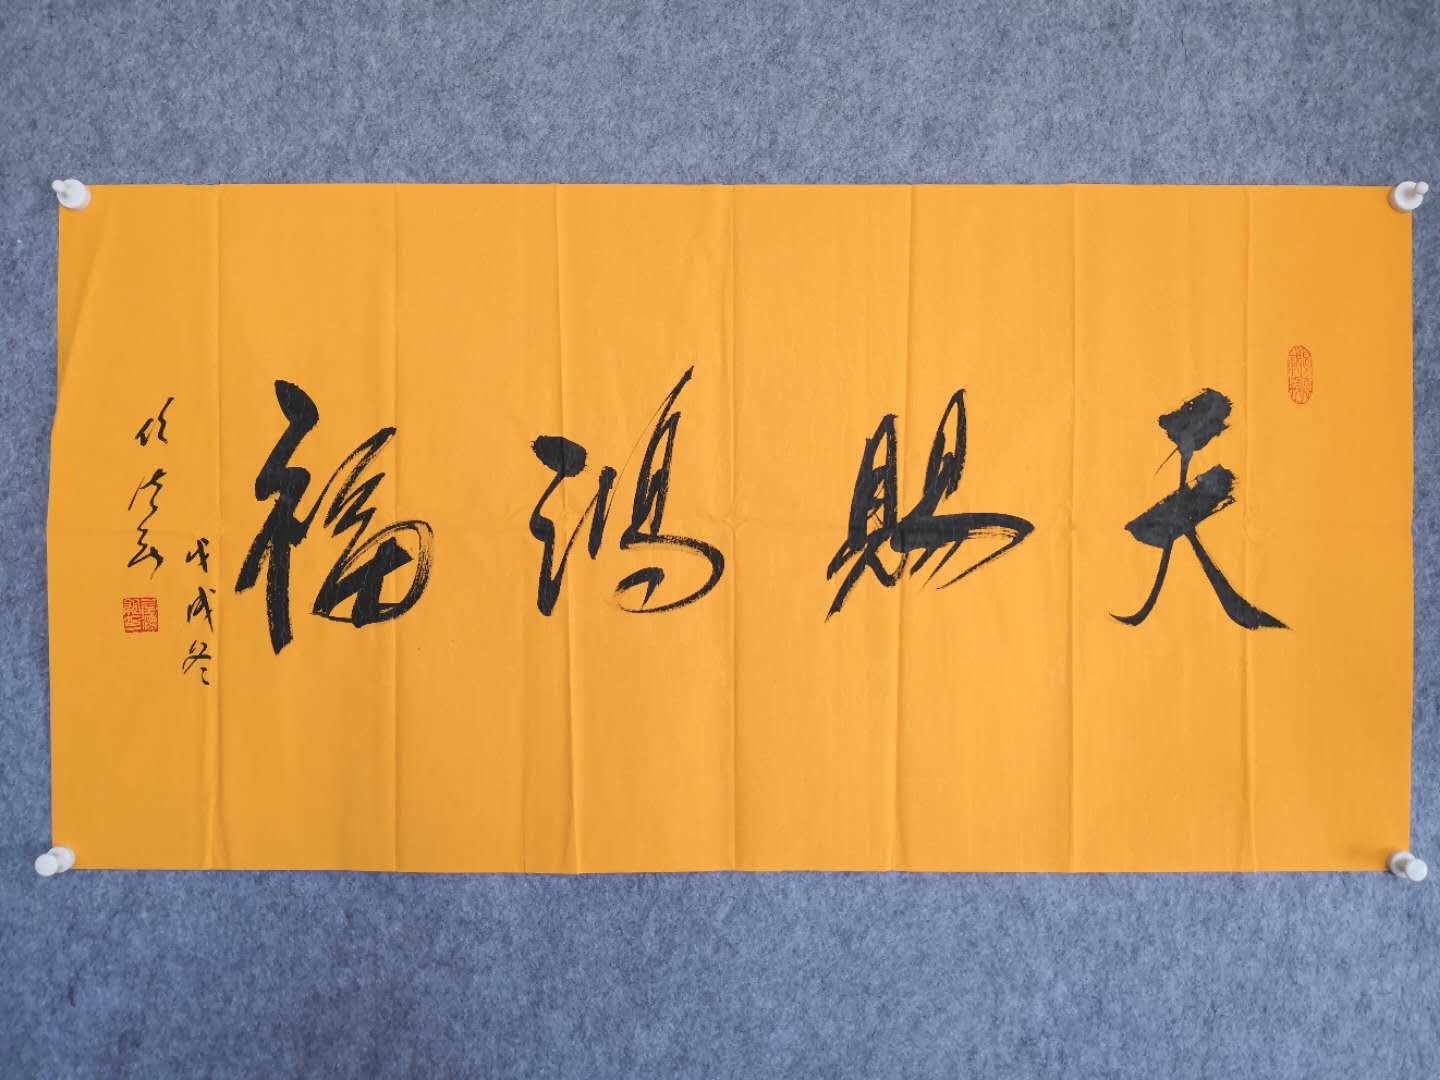 天赐鸿福
戊戌冬